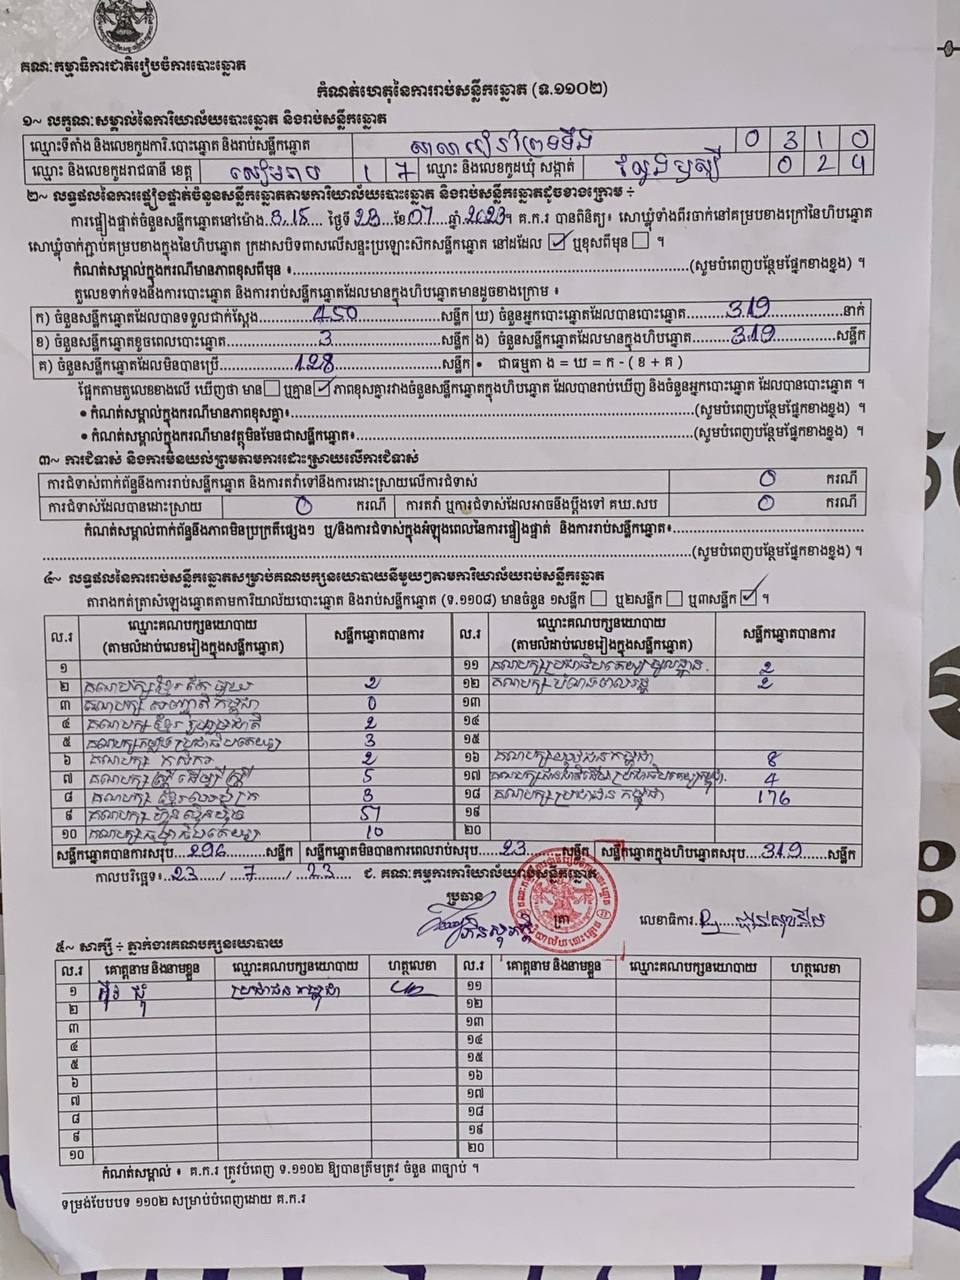 គណៈកម្មាធិការជាតិរៀបចំការបោះឆ្នោត
កំណត់ហេតុនៃការរាប់សន្លឹកឆ្នោត (ទ.១១០២)
១~ លក្ខណៈសម្គាល់នៃការិយាល័យបោះឆ្នោត និងរាប់សន្លឹកឆ្នោត
ឈ្មោះទីតាំង និងលេខកូដការិ.បោះឆ្នោត និងរាប់សន្លឹកឆ្នោត សាលារៀន 0 3 1 0
ឈ្មោះ និងលេខកូដរាជធានី ខេត្ត សៀមរាប 1 7 ឈ្មោះ និងលេខកូដឃុំ សង្កាត់ ស្វែងឫស្សី 0 2 4
២~ លទ្ធផលនៃការផ្ទៀងផ្ទាត់ចំនួនសន្លឹកឆ្នោតតាមការិយាល័យបោះឆ្នោត និងរាប់សន្លឹកឆ្នោតដូចខាងក្រោម ÷
ការផ្ទៀងផ្ទាត់ចំនួនសន្លឹកឆ្នោតនៅម៉ោង..3.15.. ថ្ងៃទី 23 ខែ 07 ឆ្នាំ 2023។ គ.ក.រ បានពិនិត្យ៖ សោឃ្មុំទាំងពីរចាក់នៅគម្របខាងក្រៅនៃហិបឆ្នោត
សោឃ្មុំចាក់ភ្ជាប់គម្របខាងក្នុងនៃហិបឆ្នោត ក្រដាសបិទពាសលើសន្ទះប្រឡោះស៊កសន្លឹកឆ្នោត នៅដដែល ☑ ឬខុសពីមុន ☐ ។
កំណត់សម្គាល់ក្នុងករណីមានភាពខុសពីមុន ៖..........(សូមបំពេញបន្ថែមផ្នែកខាងខ្នង) ។
តួលេខទាក់ទងនឹងការបោះឆ្នោត និងការរាប់សន្លឹកឆ្នោតដែលមានក្នុងហិបឆ្នោតមានដូចខាងក្រោម ៖
ក) ចំនួនសន្លឹកឆ្នោតដែលបានទទួលជាក់ស្តែង 450 សន្លឹក ឃ) ចំនួនអ្នកបោះឆ្នោតដែលបានបោះឆ្នោត 319 នាក់
ខ) ចំនួនសន្លឹកឆ្នោតខូចពេលបោះឆ្នោត 3 សន្លឹក ង) ចំនួនសន្លឹកឆ្នោតដែលមានក្នុងហិបឆ្នោត 319 សន្លឹក
គ) ចំនួនសន្លឹកឆ្នោតដែលមិនបានប្រើ 128 សន្លឹក • ជាធម្មតា ង = ឃ = ក - ( ខ + គ )
ផ្អែកតាមតួលេខខាងលើ ឃើញថា មាន ☐ ឬគ្មាន ☑ ភាពខុសគ្នារវាងចំនួនសន្លឹកឆ្នោតក្នុងហិបឆ្នោត ដែលបានរាប់ឃើញ និងចំនួនអ្នកបោះឆ្នោត ដែលបានបោះឆ្នោត ។
• កំណត់សម្គាល់ក្នុងករណីមានភាពខុសគ្នា៖..........(សូមបំពេញបន្ថែមផ្នែកខាងខ្នង) ។
• កំណត់សម្គាល់ក្នុងករណីមានវត្ថុមិនមែនជាសន្លឹកឆ្នោត៖..........(សូមបំពេញបន្ថែមផ្នែកខាងខ្នង) ។
៣~ ការជំទាស់ និងការមិនយល់ព្រមតាមការដោះស្រាយលើការជំទាស់
ការជំទាស់ពាក់ព័ន្ធនឹងការរាប់សន្លឹកឆ្នោត និងការតវ៉ាទៅនឹងការដោះស្រាយលើការជំទាស់ 0 ករណី
ការជំទាស់ដែលបានដោះស្រាយ 0 ករណី ការតវ៉ា ឬការជំទាស់ដែលអាចនឹងប្តឹងទៅ គឃ.សប 0 ករណី
កំណត់សម្គាល់ពាក់ព័ន្ធនឹងភាពមិនប្រក្រតីផ្សេងៗ ឬ/និងការជំទាស់ក្នុងអំឡុងពេលនៃការផ្ទៀងផ្ទាត់ និងការរាប់សន្លឹកឆ្នោត៖..........
..........(សូមបំពេញបន្ថែមផ្នែកខាងខ្នង) ។
៤~ លទ្ធផលនៃការរាប់សន្លឹកឆ្នោតសម្រាប់គណបក្សនយោបាយនីមួយៗតាមការិយាល័យរាប់សន្លឹកឆ្នោត
តារាងកត់ត្រាសំឡេងឆ្នោតតាមការិយាល័យបោះឆ្នោត និងរាប់សន្លឹកឆ្នោត (ទ.១១០៨) មានចំនួន ១សន្លឹក ☐ ឬ២សន្លឹក ☐ ឬ៣សន្លឹក ☑ ។
ល.រ ឈ្មោះគណបក្សនយោបាយ (តាមលំដាប់លេខរៀងក្នុងសន្លឹកឆ្នោត) សន្លឹកឆ្នោតបានការ ល.រ ឈ្មោះគណបក្សនយោបាយ (តាមលំដាប់លេខរៀងក្នុងសន្លឹកឆ្នោត) សន្លឹកឆ្នោតបានការ
១ ១១ គណបក្សប្រជាធិបតេយ្យមូលដ្ឋាន 2
២ គណបក្សខ្មែរ 2 ១២ គណបក្ស 2
៣ គណបក្ស សញ្ជាតិកម្ពុជា 0 ១៣
៤ គណបក្សខ្មែររួបរួមជាតិ 2 ១៤
៥ គណបក្សយុវជនប្រជាធិបតេយ្យ 3 ១៥
៦ គណបក្ស កសិករ 2 ១៦ គណបក្សយុវជនកម្ពុជា 8
៧ គណបក្សស្ត្រីដើម្បីស្ត្រី 5 ១៧ គណបក្ស 4
៨ គណបក្សខ្មែរ 3 ១៨ គណបក្សប្រជាជនកម្ពុជា 176
៩ គណបក្សហ៊្វុនស៊ិនប៉ិច 51 ១៩
១០ គណបក្សធម្មាធិបតេយ្យ 10 ២០
សន្លឹកឆ្នោតបានការសរុប 296 សន្លឹក សន្លឹកឆ្នោតមិនបានការពេលរាប់សរុប 23 សន្លឹក សន្លឹកឆ្នោតក្នុងហិបឆ្នោតសរុប 319 សន្លឹក
កាលបរិច្ឆេទ៖ 23 / 7 / 23 ជ. គណៈកម្មការការិយាល័យរាប់សន្លឹកឆ្នោត
ប្រធាន
ត្រា លេខាធិការ
៥~ សាក្សី ÷ ភ្នាក់ងារគណបក្សនយោបាយ
ល.រ គោត្តនាម និងនាមខ្លួន ឈ្មោះគណបក្សនយោបាយ ហត្ថលេខា ល.រ គោត្តនាម និងនាមខ្លួន ឈ្មោះគណបក្សនយោបាយ ហត្ថលេខា
១ ប្រជាជនកម្ពុជា ១១
២ ១២
៣ ១៣
៤ ១៤
៥ ១៥
៦ ១៦
៧ ១៧
៨ ១៨
៩ ១៩
១០ ២០
កំណត់សម្គាល់ ៖ គ.ក.រ ត្រូវបំពេញ ទ.១១០២ ឱ្យបានត្រឹមត្រូវ ចំនួន ៣ច្បាប់ ។
ទម្រង់បែបបទ ១១០២ សម្រាប់បំពេញដោយ គ.ក.រ